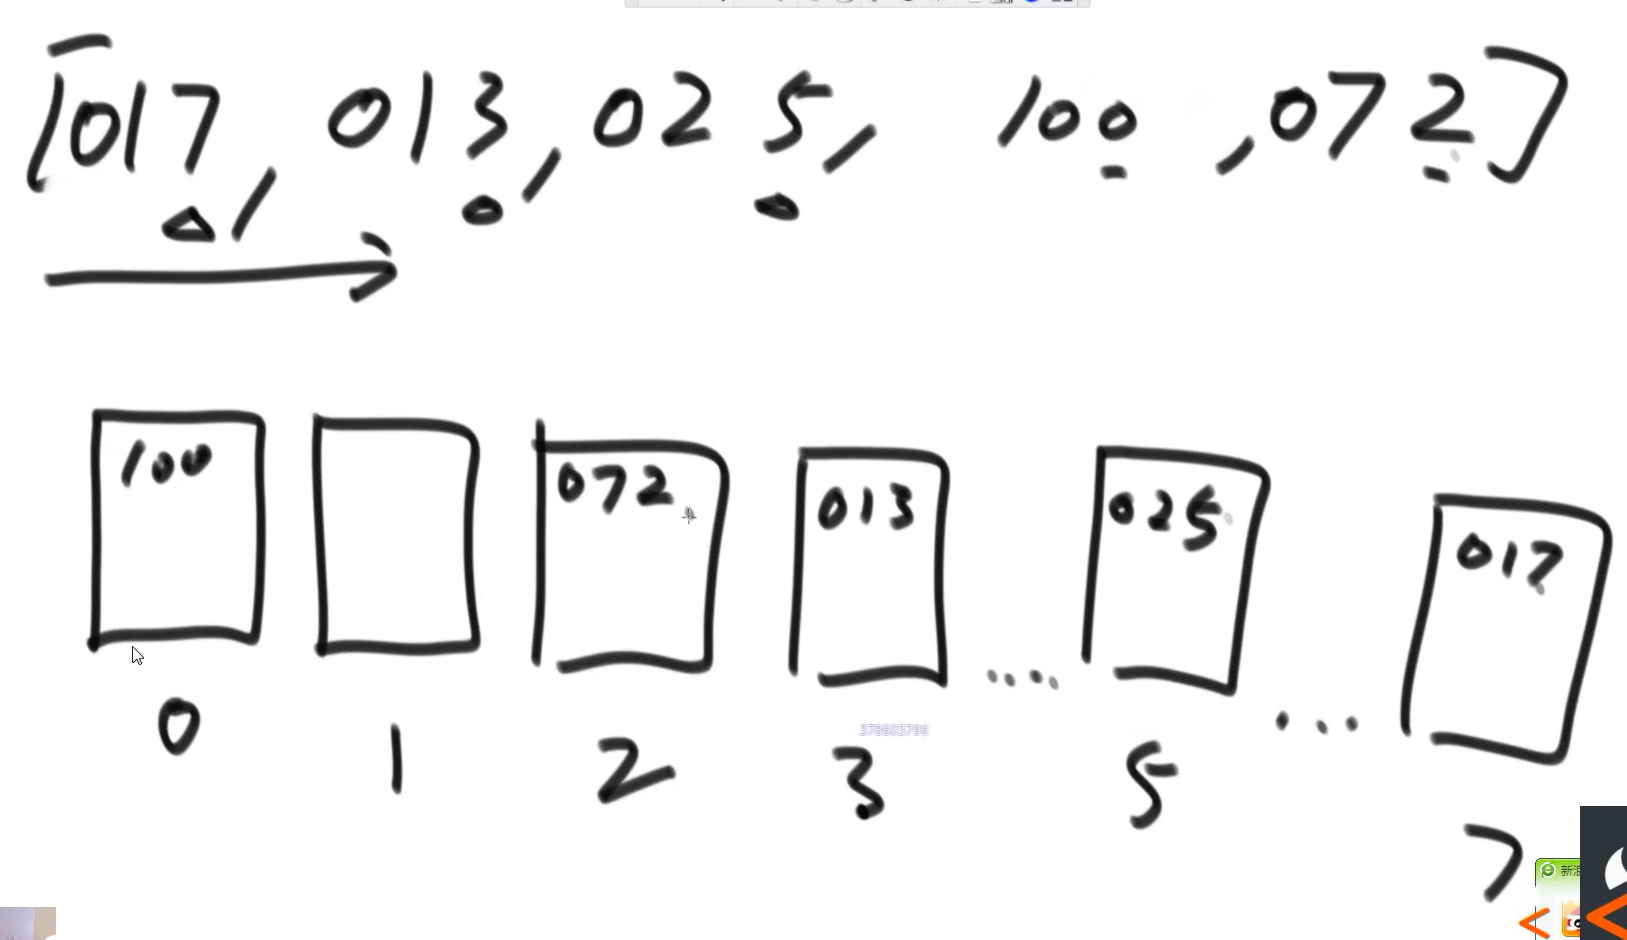 [017, 013, 025, 100, 072]
100 072 013 025 017
0 1 2 3 .... 5 ... 7
378603796
新浪